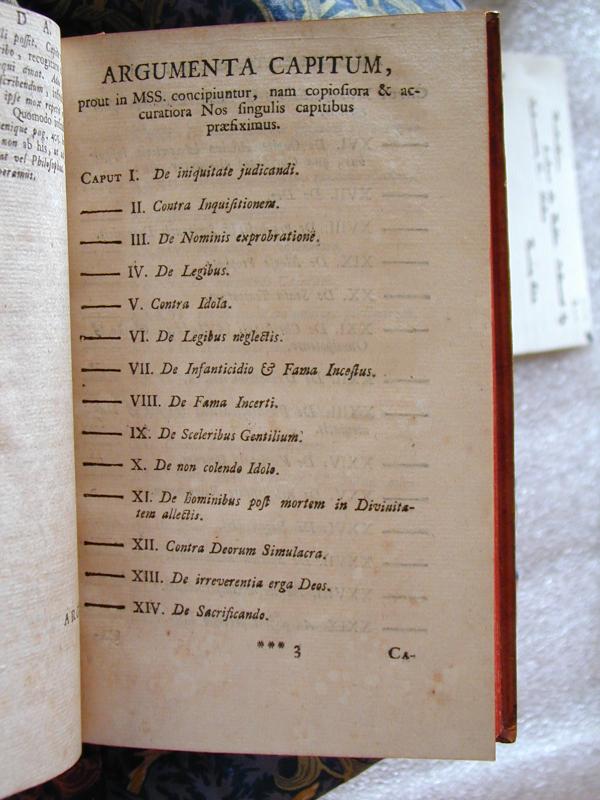 D A.
ARGUMENTA CAPITUM,
prout in MSS. concipiuntur, nam copiosiora & ac-
curatiora Nos singulis capitibus
præfiximus.
CAPUT I. De iniquitate judicandi.
II. Contra Inquisitionem.
III. De Nominis exprobratione.
IV. De Legibus.
V. Contra Idola.
VI. De Legibus neglectis.
VII. De Infanticidio & Fama Incestus.
VIII. De Fama Incerti.
IX. De Sceleribus Gentilium.
X. De non colendo Idolo.
XI. De hominibus post mortem in Divinita-
tem allectis.
XII. Contra Deorum Simulacra.
XIII. De irreverentia erga Deos.
XIV. De Sacrificando.
*** 3 CA-